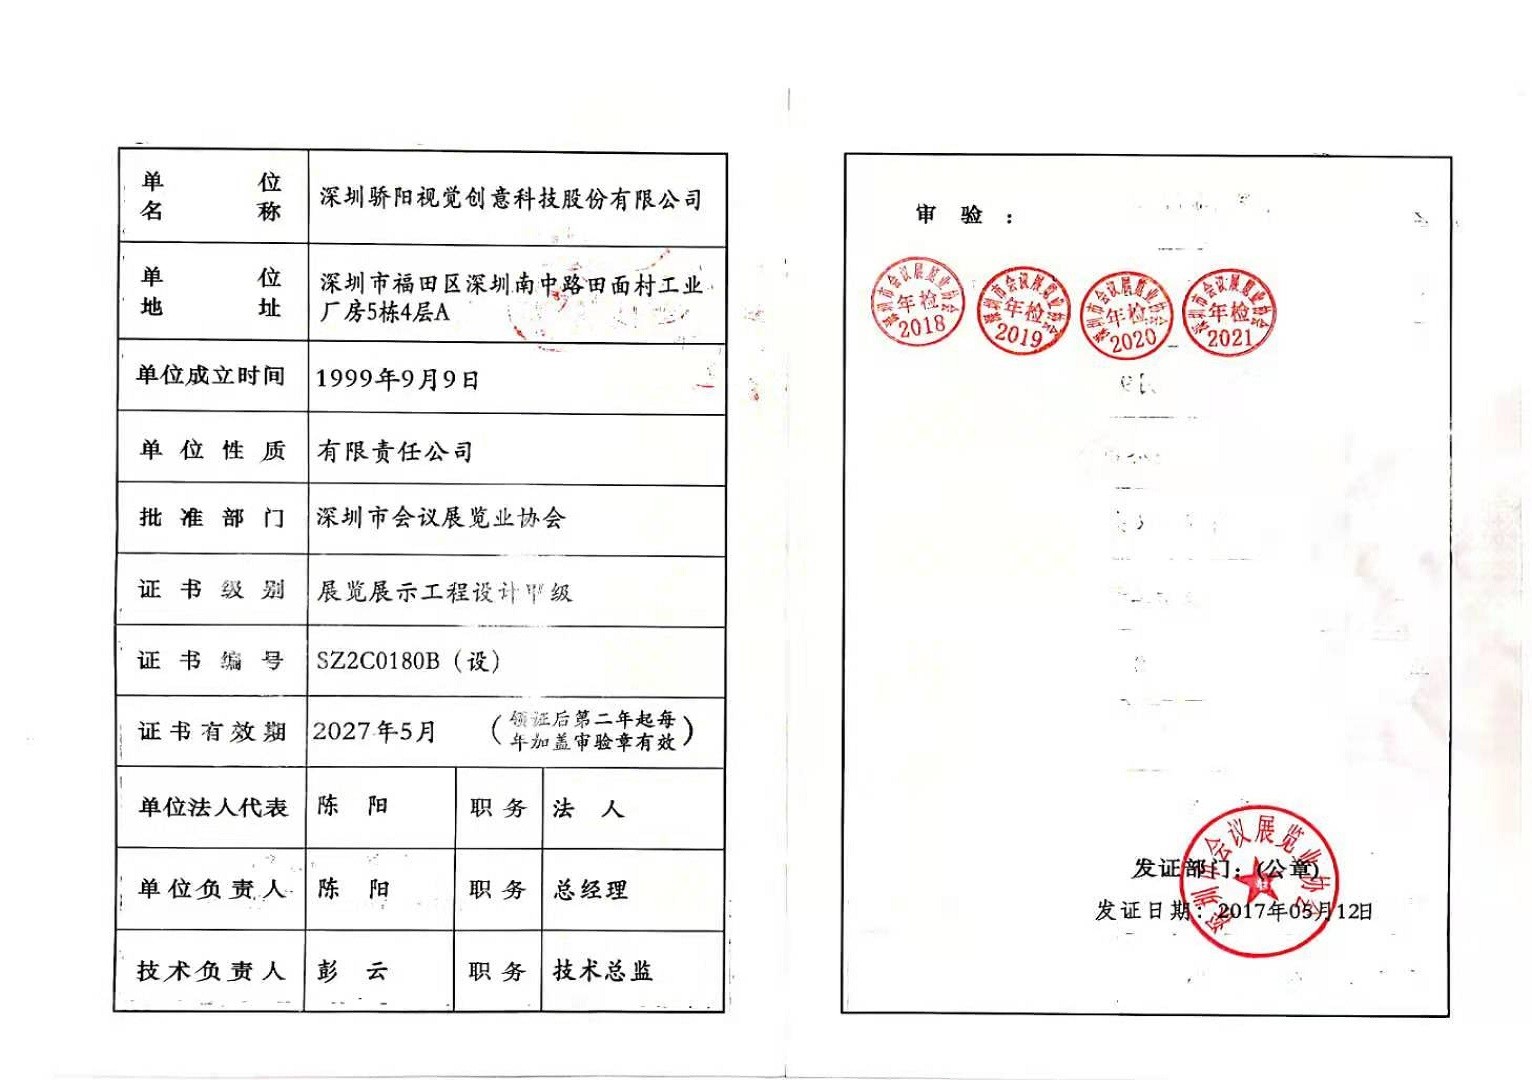 单位
名称
深圳骄阳视觉创意科技股份有限公司
单位
地址
深圳市福田区深圳南中路田面村工业
厂房5栋4层A
单位成立时间
1999年9月9日
单位性质
有限责任公司
批准部门
深圳市会议展览业协会
证书级别
展览展示工程设计甲级
证书编号
SZ2C0180B（设）
证书有效期
2027年5月
（领证后第二年起每
年加盖审验章有效）
单位法人代表
陈阳
职务
法人
单位负责人
陈阳
职务
总经理
技术负责人
彭云
职务
技术总监
审验：
深圳市会议展览业协会
年检
2018
深圳市会议展览业协会
年检
2019
深圳市会议展览业协会
年检
2020
深圳市会议展览业协会
年检
2021
深圳市会议展览业协会
发证部门：(公章)
发证日期：2017年05月12日